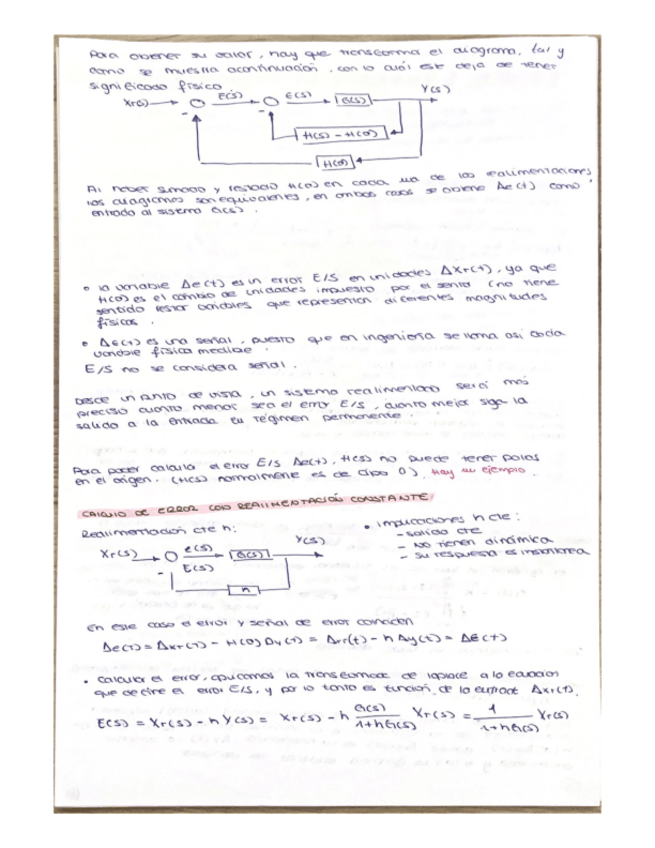 Para obtener su valor, hay que transforma el diagrama, tal y
como se muestra acontinuación, con lo cuál este deja de tener
significado físico
Xr(s) E(s) E(s) G(s) Y(s)
-
-
H(s) - H(0)
H(0)
Al haber sumado y restado H(0) en cada una de las realimentaciones,
los diagramas son equivalentes, en ambos casos se obtiene Δe(t) como
entrada al sistema G(s).
• la variable Δe(t) es un error E/S en unidades ΔXr(t), ya que
H(0) es el cambio de unidades impuesto por el sensor (no tiene
sentido restar variables que representan diferentes magnitudes
físicas.
• ΔE(t) es una señal, puesto que en ingeniería se llama así cada
variable física medible.
E/S no se considera señal.
Desde un punto de vista, un sistema realimentado será más
preciso cuanto menor sea el error E/S, cuanto mejor siga la
salida a la entrada en régimen permanente.
Para poder calcular el error E/S Δe(t), H(s) no puede tener polos
en el origen. (H(s) normalmente es de tipo 0). Hay un ejemplo.
CALCULO DE ERROR CON REALIMENTACIÓN CONSTANTE
Realimentación cte h:
Xr(s) e(s) G(s) Y(s)
E(s)
-
h
• Implicaciones h cte:
- salida cte
- NO tienen dinámica
- su respuesta es instantanea
En este caso el error y señal de error coinciden
Δe(t) = Δxr(t) - H(0) Δy(t) = Δxr(t) - h Δy(t) = ΔE(t)
• Calcular el error, aplicamos la transformada de laplace a la ecuación
que define el error E/S, y por lo tanto es función de la entrada ΔXr(t).
E(s) = Xr(s) - h Y(s) = Xr(s) - h G(s)/1+hG(s) Xr(s) = 1/1+hG(s) Xr(s)